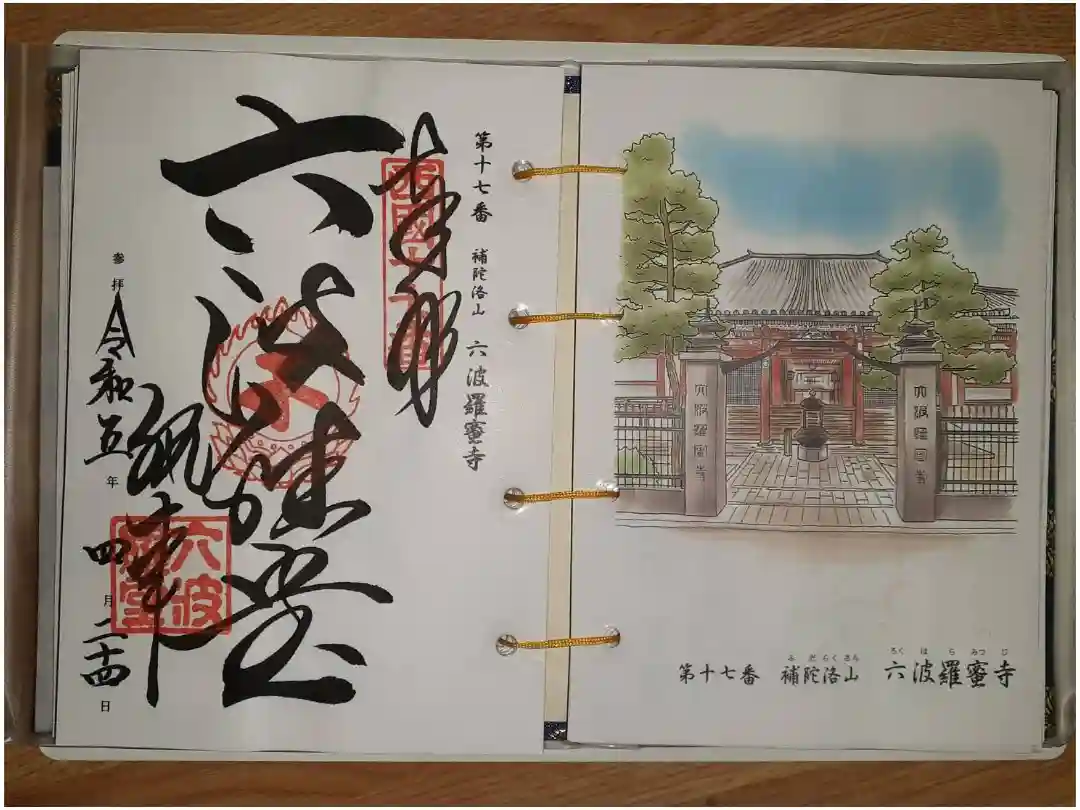 六波羅蜜寺
ふだらくさん ろくはらみつじ
第十七番 補陀洛山 六波羅蜜寺
第十七番 補陀洛山 六波羅蜜寺
奉拝
西國十七番
六波羅堂
参拝 令和五年四月二十四日